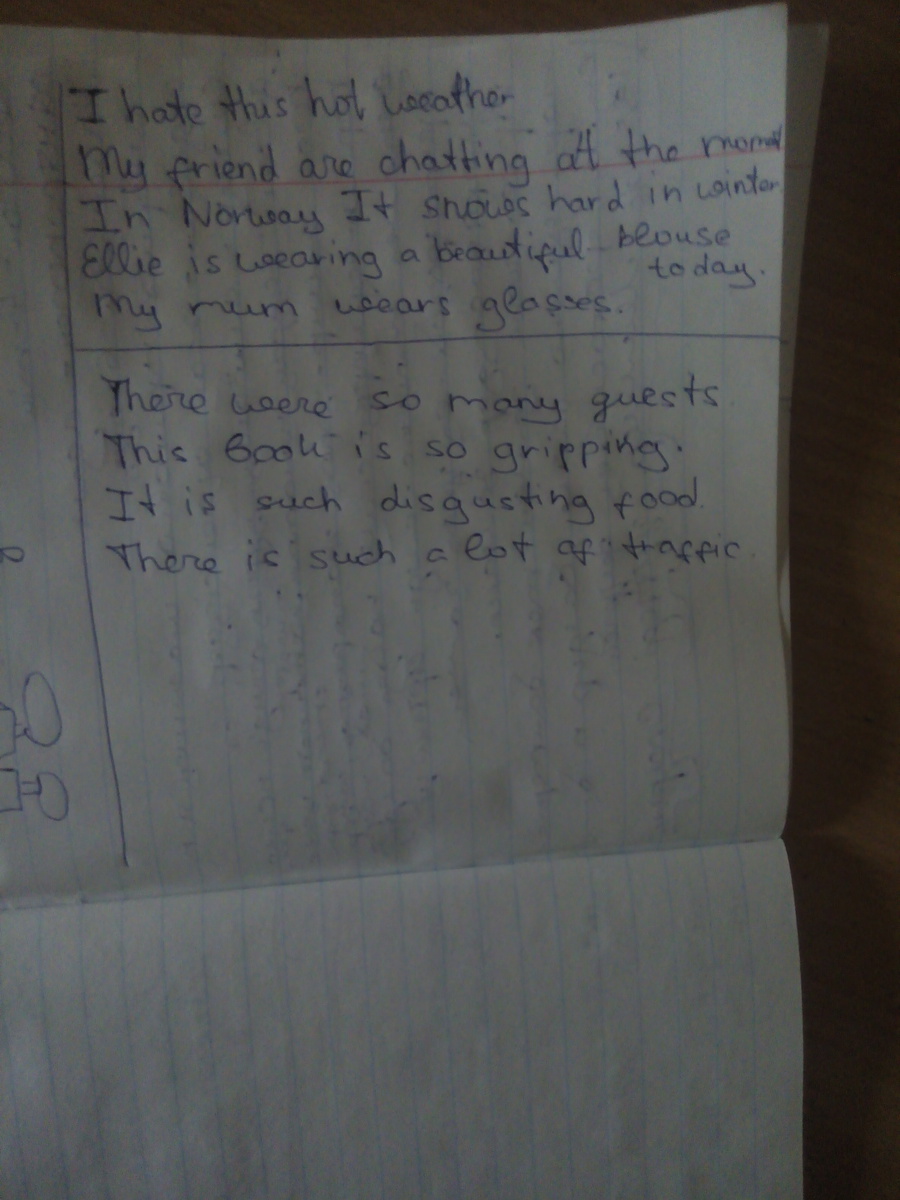 I hate this hot weather
My friend are chatting at the moment
In Norway It snows hard in winter.
Ellie is wearing a beautiful blouse
today.
My mum wears glasses.
There were so many guests
This book is so gripping.
It is such disgusting food.
There is such a lot of traffic.